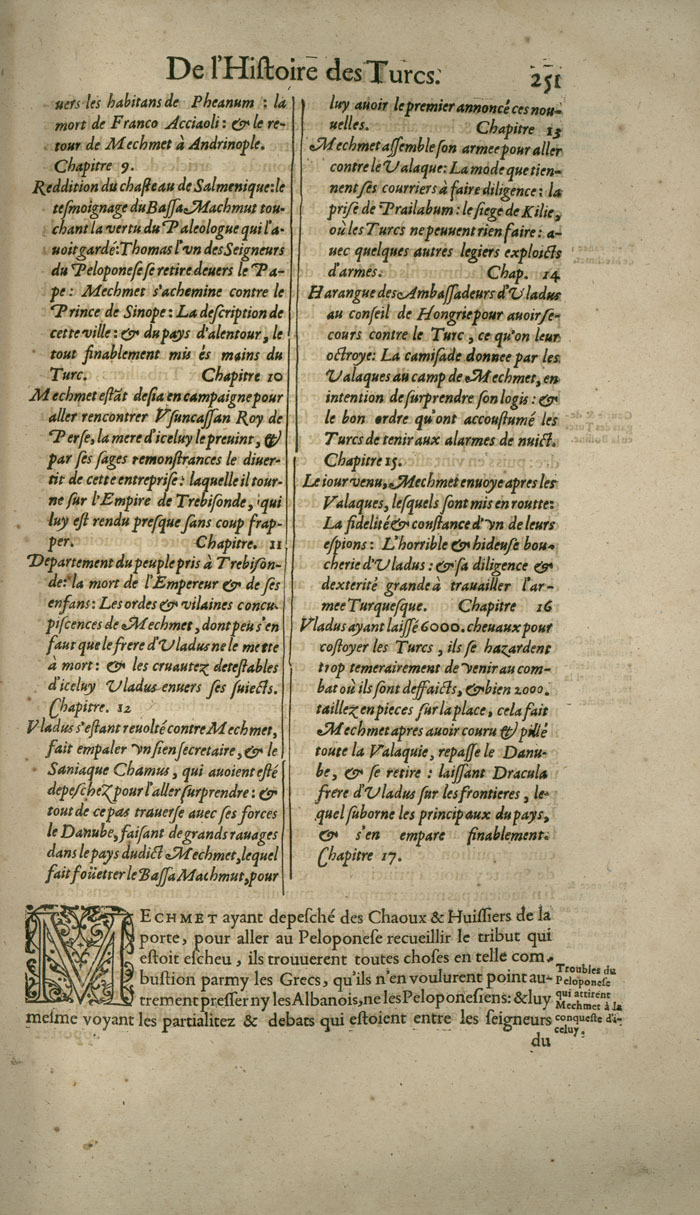 De l'Hiſtoire des Turcs.
251
uers les habitans de Pheanum : la
mort de Franco Acciaoli : & le re-
tour de Mechmet à Andrinople.
Chapitre 9.
Reddition du chaſteau de Salmenique: le
teſmoignage du Baſſa Machmut tou-
chant la vertu du Paleologue qui l'a-
uoit gardé: Thomas l'vn des Seigneurs
du Peloponeſe ſe retire deuers le Pa-
pe : Mechmet s'achemine contre le
Prince de Sinope : La deſcription de
cette ville : & du pays d'alentour, le
tout finablement mis és mains du
Turc. Chapitre 10
Mechmet eſtāt deſia en campaigne pour
aller rencontrer Vſuncaſſan Roy de
Perſe, la mere d'iceluy le preuint, &
par ſes ſages remonſtrances le diuer-
tit de cette entrepriſe : laquelle il tour-
ne ſur l'Empire de Trebiſonde, qui
luy eſt rendu preſque ſans coup frap-
per. Chapitre. 11
Departement du peuple pris à Trebiſon-
de: la mort de l'Empereur & de ſes
enfans: Les ordes & vilaines concu-
piſcences de Mechmet, dont peu s'en
faut que le frere d'Vladus ne le mette
à mort : & les cruautez deteſtables
d'iceluy Vladus enuers ſes ſuiects.
Chapitre. 12
Vladus s'eſtant reuolté contre Mechmet,
fait empaler vn ſien ſecretaire, & le
Saniaque Chamus, qui auoient eſté
depeſchez pour l'aller ſurprendre : &
tout de ce pas trauerſe auec ſes forces
le Danube, faiſant de grands rauages
dans le pays dudict Mechmet, lequel
fait foüetter le Baſſa Machmut, pour
luy auoir le premier annoncé ces nou-
uelles. Chapitre 13
Mechmet aſſemble ſon armee pour aller
contre le Valaque: La mode que tien-
nent ſes courriers à faire diligence : la
priſe de Prailabum : le ſiege de Kilie,
où les Turcs ne peuuent rien faire : a-
uec quelques autres legiers exploicts
d'armes. Chap. 14
Harangue des Ambaſſadeurs d'Vladus
au conſeil de Hongrie pour auoir ſe-
cours contre le Turc, ce qu'on leur
octroye: La camiſade donnee par les
Valaques au camp de Mechmet, en
intention de ſurprendre ſon logis : &
le bon ordre qu'ont accouſtumé les
Turcs de tenir aux alarmes de nuict.
Chapitre 15.
Le iour venu, Mechmet enuoye apres les
Valaques, leſquels ſont mis en routte:
La fidelité & conſtance d'vn de leurs
eſpions : L'horrible & hideuſe bou-
cherie d'Vladus : & ſa diligence &
dexterité grande à trauailler l'ar-
mee Turqueſque. Chapitre 16
Vladus ayant laiſſé 6000. cheuaux pour
coſtoyer les Turcs, ils ſe hazardent
trop temerairement de venir au com-
bat où ils ſont deffaicts, & bien 2000.
taillez en pieces ſur la place, cela fait
Mechmet apres auoir couru & pillé
toute la Valaquie, repaſſe le Danu-
be, & ſe retire : laiſſant Dracula
frere d'Vladus ſur les frontieres, le-
quel ſuborne les principaux du pays,
& s'en empare finablement.
Chapitre 17.
MECHMET ayant depeſché des Chaoux & Huiſſiers de la
porte, pour aller au Peloponeſe recueillir le tribut qui
eſtoit eſcheu, ils trouuerent toutes choſes en telle com-
buſtion parmy les Grecs, qu'ils n'en voulurent point au-
trement preſſer ny les Albanois, ne les Peloponeſiens: & luy
meſme voyant les partialitez & debats qui eſtoient entre les ſeigneurs
du
Troubles du
Peloponeſe
qui attirent
Mechmet à la
conqueſte d'i-
celuy.